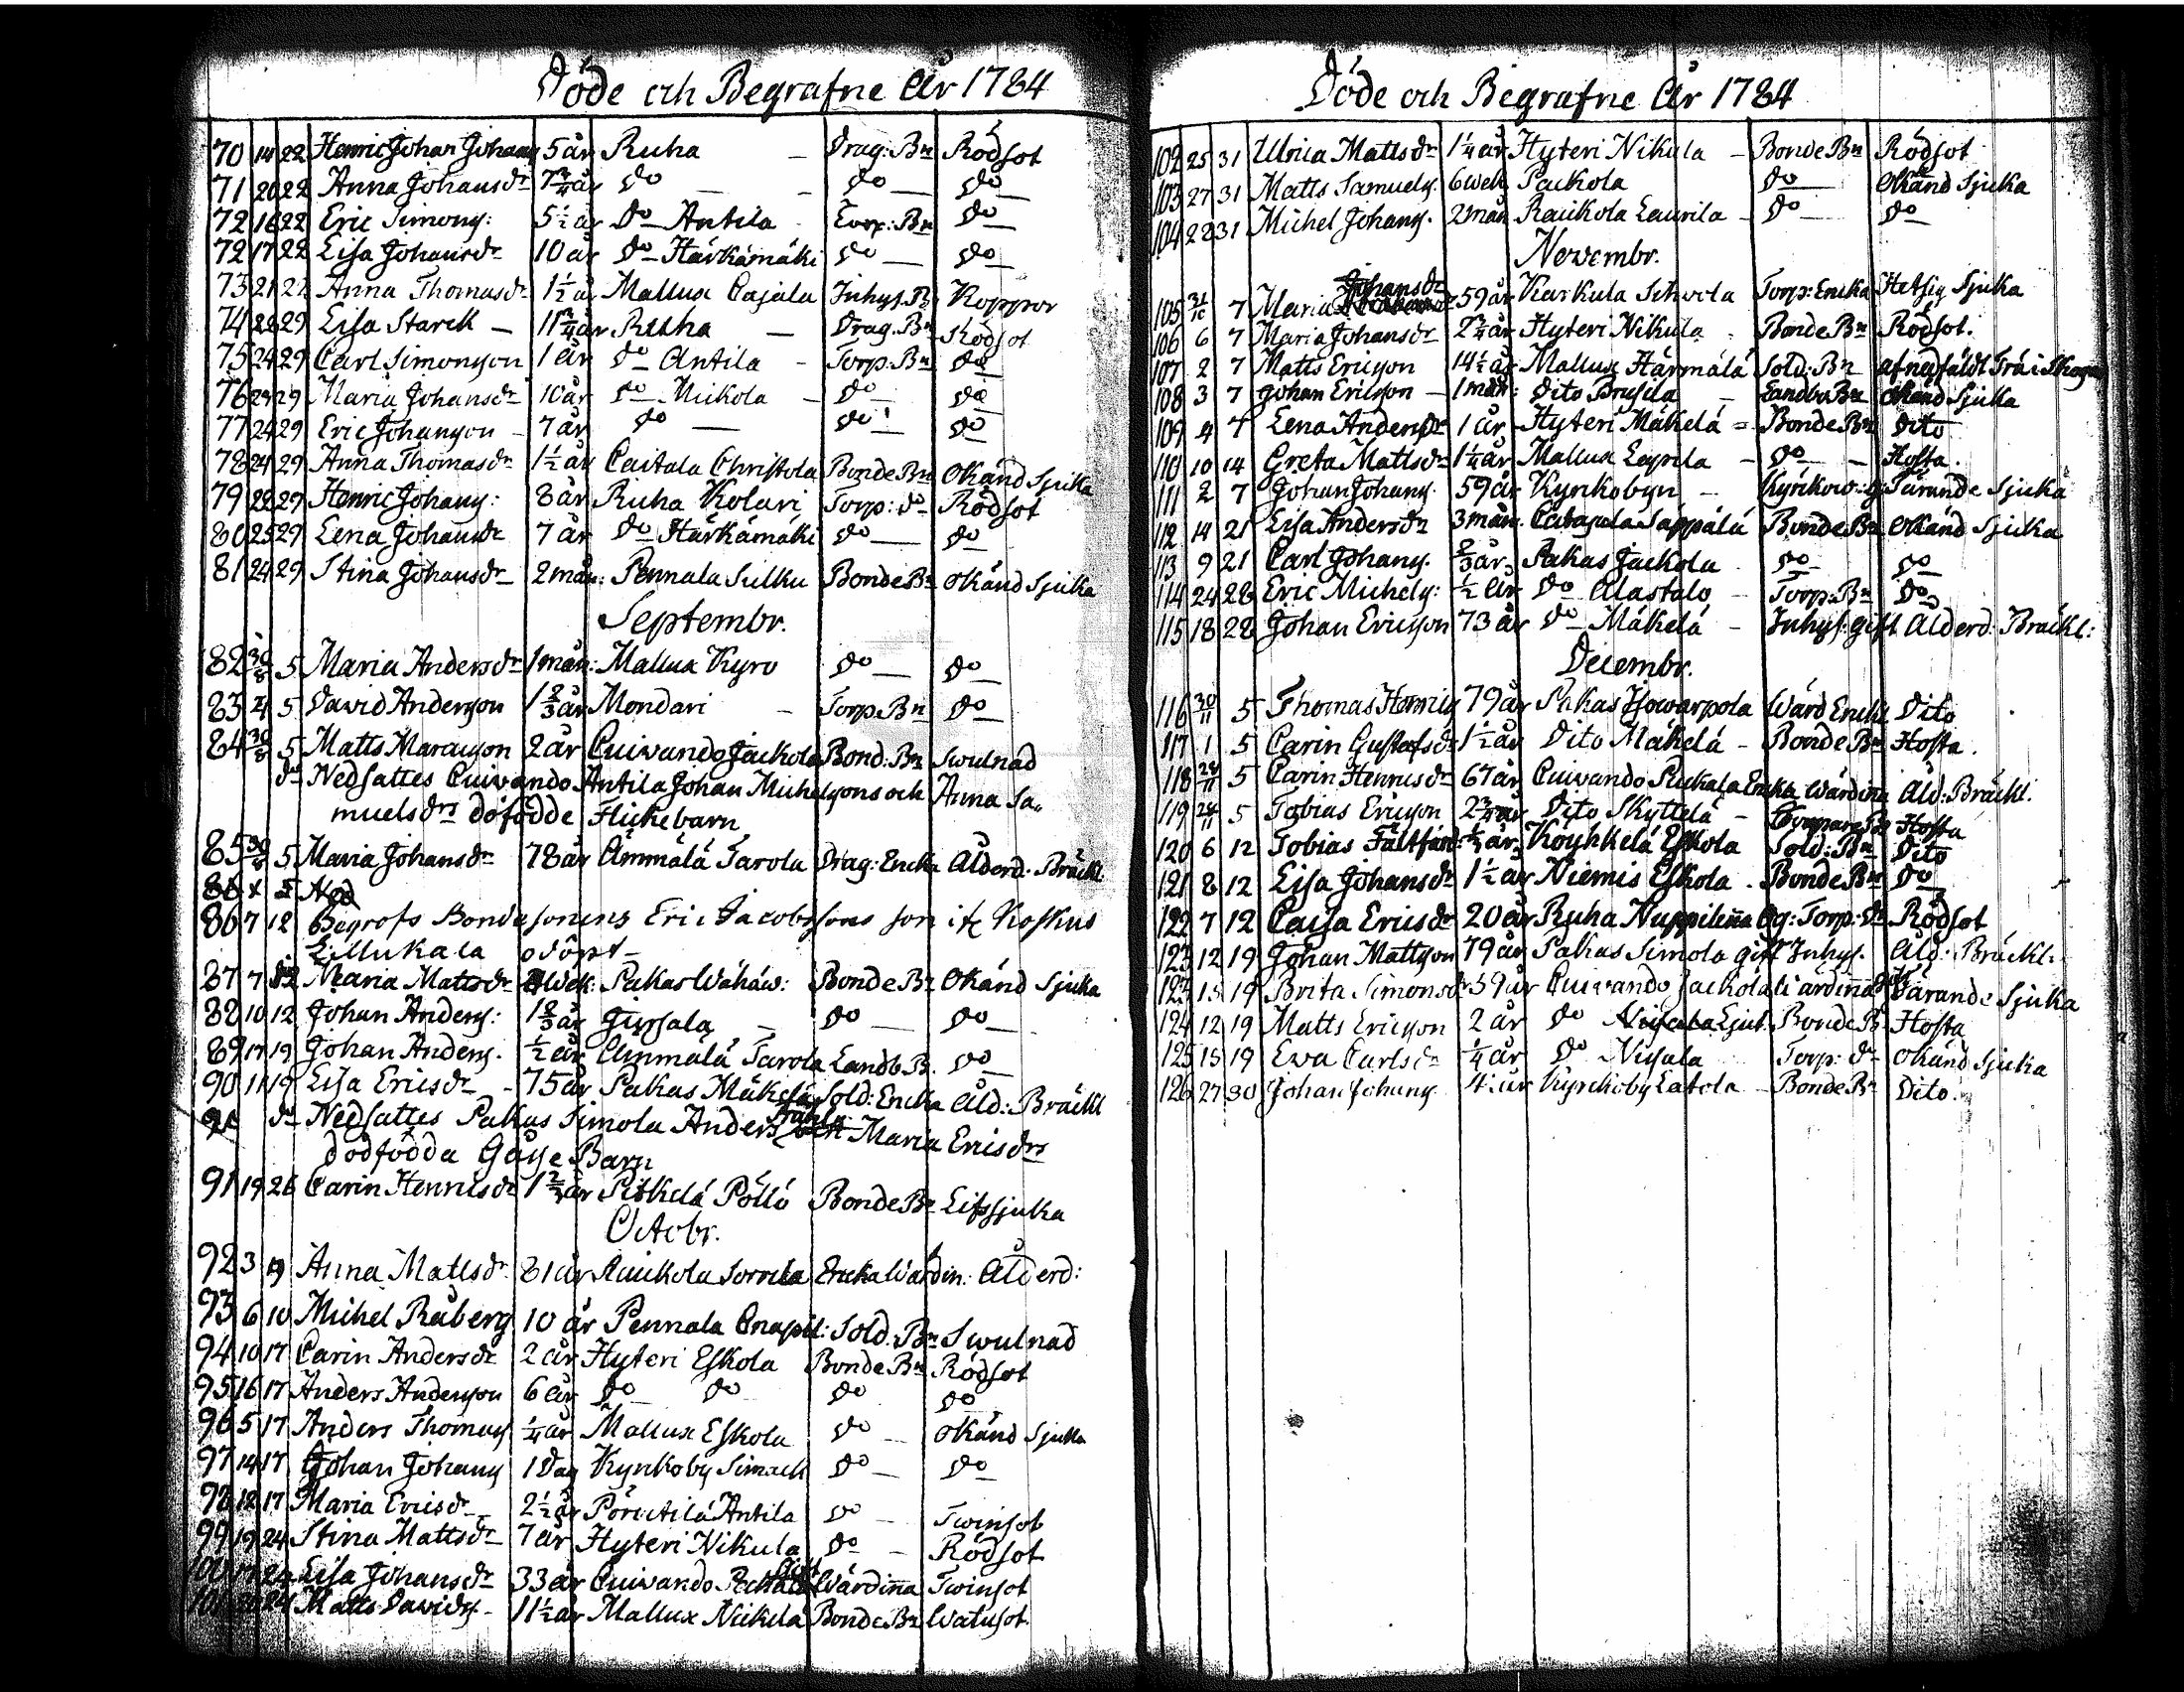 Döde och Begrafne År 1784
70 14 22 Henric Johan Johans 5 år Ruha – Drag: Bn Rödsot
71 20 22 Anna Johansdr 7 3/4 år do – do – do
72 16 22 Eric Simons: 5 1/2 år do Antila Torp: Bn do
72 17 22 Lisa Johansdr 10 år do Härkämäki do – do
73 21 22 Anna Thomasdr 1 1/2 år Mallux Cajala Inhys. B. Koppor
74 28 29 Lisa Starck – 11 3/4 år Ruha – Drag: Bn Rödsot
75 24 29 Carl Simonson 1 år do Antila – Torp: Bn do
76 29 29 Maria Johansdr 10 år do Mickola – do do
77 24 29 Eric Johanson – 7 år do – do do
78 24 29 Anna Thomasdr 1 1/2 år Caitala Christola Bonde Bn okänd Sjuka
79 28 29 Henric Johans: 8 år Ruha Kolari Torp: do Rödsot
80 25 29 Lena Johansdr 7 år do Härkämäki do – do
81 24 29 Stina Johansdr 2 mån: Pennala Sulku Bonde Bn okänd Sjuka
Septembr.
82 30/8 5 Maria Andersdr 1 mån: Mallux Kyro do – do
83 4 5 David Anderson 1 2/3 år Mondari – Torp. Bn do
84 30/8 5 Matts Marcuson 2 år Cuivando Jackola Bond: Bn Swulnad
do Nedsattes Cuivando Antila Johan Michelsons och Anna Sa„
muelsdrs dödfödde Flickebarn
85 30/8 5 Maria Johansdr 78 år Ämmälä Tarola Drag: Encka Ålderd: Bräckl:
86 4 5 Ned
86 7 12 Begrofs Bondesonens Eric Jacobssons son ifr. Koskus
Lillukala odöpt –
87 7 12 Maria Mattsdr Wek: Pakas Wähäw: Bonde Bn Okänd Sjuka
88 10 12 Johan Anders: 1 2/3 år Gipsala – do – do
89 17 19 Johan Anders. 1/2 år Ämmälä Tarola Landb. B. do
90 11 19 Lisa Ericsdr – 75 år Pakas Mäkelä Sold: Encka Åld: Bräckl
do Nedsattes Pakas Simola Anders och Maria Ericsdrs
dödfödda Gåsse Barn
91 19 26 Carin Henricsdr 1 2/3 år Pitkelä Pöllö Bonde Bn Lifssjuka
Octobr.
92 3 Anna Mattsdr 81 år Raukola Sorrila Encka Wärdin: Ålderd:
93 6 10 Michel Råberg 10 år Pennala Cnapil: Sold. Bn Swulnad
94 10 17 Carin Andersdr 2 år Hyteri Eskola Bonde Bn Rödsot
95 16 17 Anders Anderson 6 år do do do do
96 5 17 Anders Thomas 1/4 år Mallux Eskola do – okänd Sjuka
97 14 17 Johan Johans 1 Dag Kyrkoby Simack do – do
98 12 17 Maria Ericsdr 2 1/2 år Antila do – Twinsot
99 19 24 Stina Mattsdr 7 år Hyteri Nikula do – Rödsot
100 24 Lisa Johansdr 33 år Cuivando Wärdinna Twinsot
101 24 Matts Davids – 11 1/2 år Mallux Nickela Bonde Bn Watusot.
Döde och Begrafne År 1784
102 25 31 Ulrica Mattsdr 1 1/4 år Hyteri Nikula – Bonde Bn Rödsot
103 27 31 Matts Samuels. 6 wek Packola do okänd Sjuka
104 28 31 Michel Johans. 2 mån Raukola Laurila – do – do
Novembr.
105 31/10 7 Maria Johansdr 59 år Karkula Torp: Encka Hetsig Sjuka
106 6 7 Maria Johansdr 2 3/4 år Hyteri Nikula. Bonde Bn Rödsot.
107 2 7 Matts Ericson 14 1/2 år Mallux Härmälä Sold: Bn af nedfäldt Trä i Skogen
108 3 7 Johan Ericson – 1 mån: Dito Brusila – Landbo Bn okänd Sjuka
109 4 7 Lena Andersdr 1 år Hyteri Mäkelä = Bonde Bn Dito
110 10 14 Greta Mattsdr 1 1/4 år Mallux – do – Hosta.
111 2 7 Johan Johans. 59 år Kyrkobyn – Tärande Sjuka
112 14 21 Lisa Andersdr 3 mån. Sappälä Bonde Bn okänd Sjuka
113 9 21 Carl Johans. 2/3 år Pakas Jackola do do
114 24 28 Eric Michels: 1/2 år do Alastalo – Torp: Bn do
115 18 28 Johan Ericsson 73 år do Mäkelä – Inhys: gift Ålderd: Bräckl:
Decembr.
116 30/11 5 Thomas Henrics 79 år Pakas Isowarpola Wärd Enckl. Dito
117 1 5 Carin Gustafsdr 1 1/2 år Dito Mäkelä – Bonde Bn Hosta.
118 5 Carin Henricsdr 67 år Cuivando Packala Encka Wärdina Åld: Bräckl.
119 24/11 5 Tobias Ericson 2 3/4 år Dito Skyttelä – Hosta
120 6 12 Tobias 1/4 år Koyhkelä Eskola Sold: Bn Dito
121 8 12 Lisa Johansdr 1 1/2 år Niemis Eskola. Bonde Bn do
122 7 12 Caisa Ericsdr 20 år Ruha Torp: dr Rödsot
123 12 19 Johan Mattson 79 år Pakas Simola gift Inhys. Åld: Bräckl:
15 19 Brita Simonsdr 59 år Cuivando Jackola Wärdinna Tärande Sjuka
124 12 19 Matts Ericson 2 år do Bonde B Hosta
125 15 19 Ewa Carlsdr 1/4 år do Nisula Torp: dr okänd Sjuka
126 27 30 Johan Johans. Kyrckoby Latola – Bonde Bn Dito.